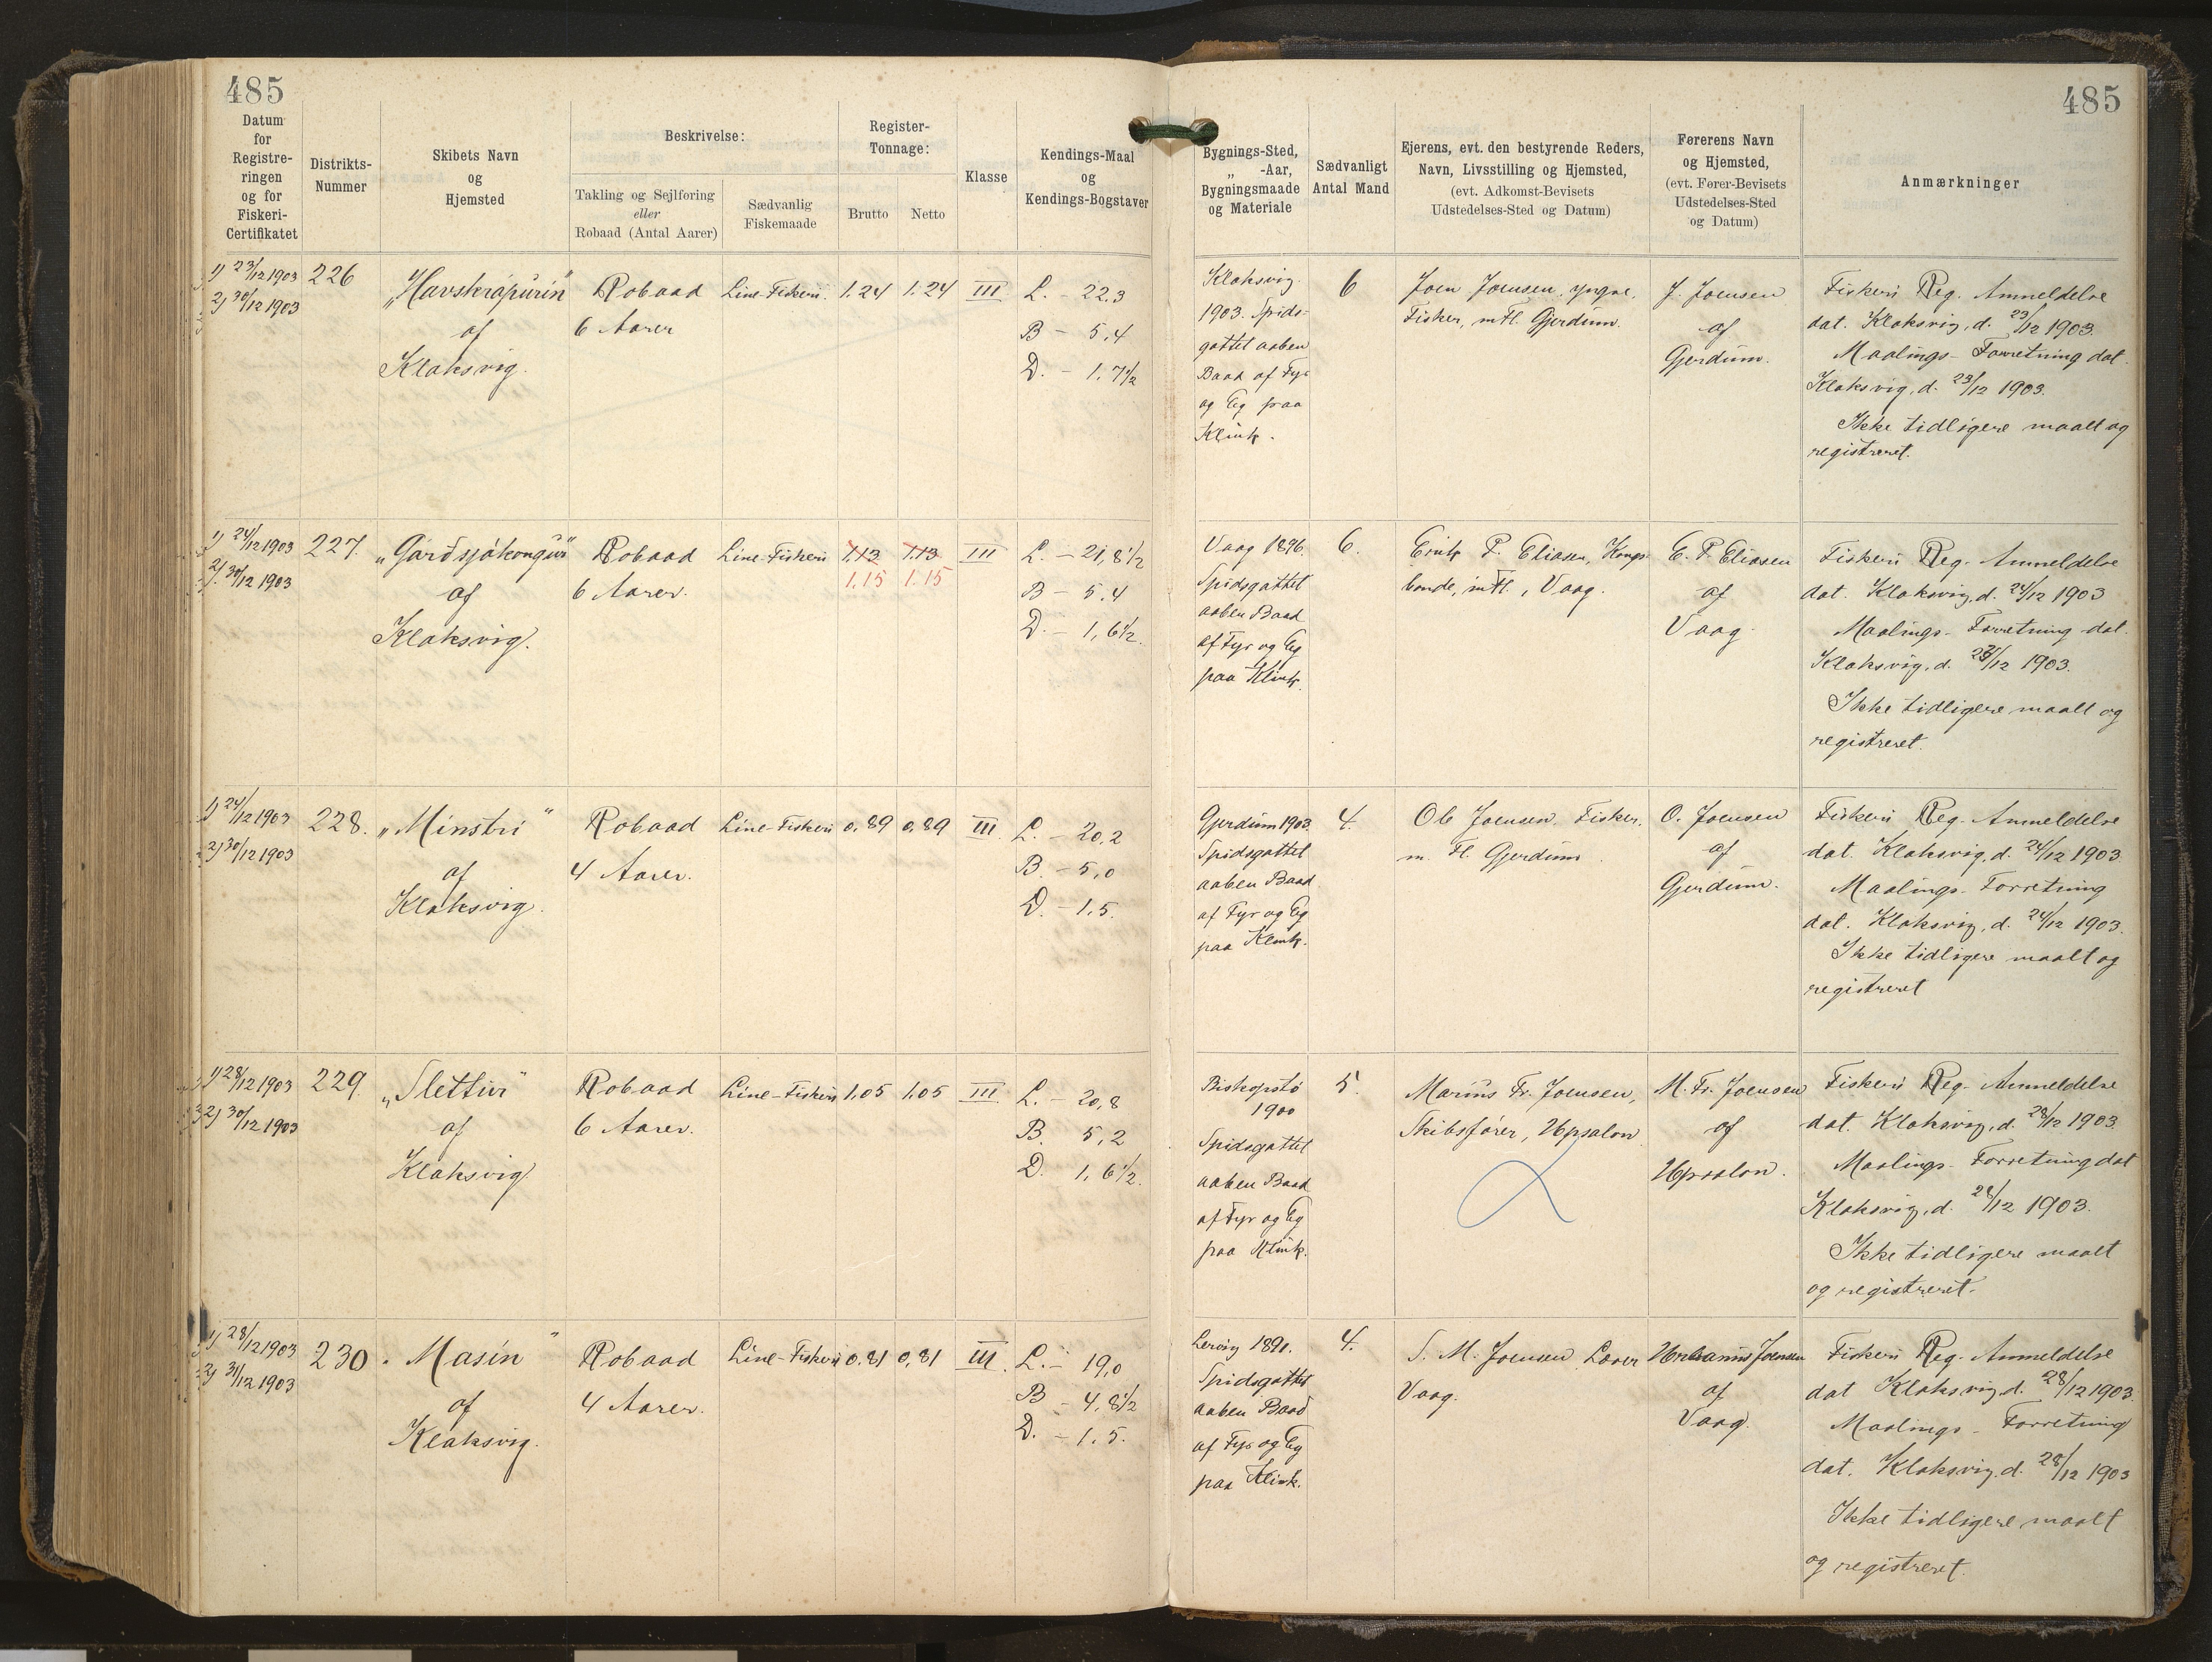 485
485
Datum
for
Registre-
ringen
og for
Fiskeri-
Certifikatet
Distrikts-
Nummer
Skibets Navn
og
Hjemsted
Beskrivelse:
Takling og Sejlføring
eller
Robaad (Antal Aarer)
Sædvanlig
Fiskemaade
Register-
Tonnage:
Brutto
Netto
Klasse
Kendings-Maal
og
Kendings-Bogstaver
Bygnings-Sted,
„ -Aar,
Bygningsmaade
og Materiale
Sædvanligt
Antal Mand
Ejerens, evt. den bestyrende Reders,
Navn, Livsstilling og Hjemsted,
(evt. Adkomst-Bevisets
Udstedelses-Sted og Datum)
Førerens Navn
og Hjemsted,
(evt. Fører-Bevisets
Udstedelses-Sted
og Datum)
Anmærkninger
1) 23/12 1903
2) 30/12 1903
226
„Havskrápurin“
af
Klaksvig.
Robaad
6 Aarer
Line-Fiskeri.
1.24
1.24
III
L. - 22.3
B - 5,4
D. - 1,7½
Klaksvig.
1903. Spids-
gattet aaben
Baad af Fyr
og Eg paa
Klink.
6
Joen Joensen, yngre,
Fisker, m Fl. Gjerdum.
J. Joensen
af
Gjerdum.
Fiskeri Reg. Anmeldelse
dat. Klaksvig, d. 23/12 1903.
Maalings-Forretning dat.
Klaksvig, d. 23/12 1903.
Ikke tidligere maalt og
registreret.
1) 24/12 1903
2) 30/12 1903
227.
„Garðsjókongur“
af
Klaksvig.
Robaad
6 Aarer.
Line-Fiskeri
1.13
1.15
1.13
1.15
III
L. - 21,8½
B - 5,4
D. - 1,6½.
Vaag 1896.
Spidsgattet
aaben Baad
af Fyr og Eg
paa Klink.
6.
Erik P. Eliasen, Kongs-
bonde, m Fl., Vaag.
E. P. Eliasen
af
Vaag.
Fiskeri Reg. Anmeldelse
dat. Klaksvig, d. 24/12 1903
Maalings-Forretning dat.
Klaksvig, d. /12 1903.
Ikke tidligere maalt og
registreret.
1) 24/12 1903
2) 30/12 1903
228.
„Minstri“
af
Klaksvig.
Robaad
4 Aarer.
Line-Fiskeri
0,89
0,89
III
L. - 20,2
B. - 5,0
D. - 1,5.
Gjerdum 1903.
Spidsgattet
aaben Baad
af Fyr og Eg
paa Klink.
4.
Ole Joensen, Fisker,
m. Fl. Gjerdum
O. Joensen
af
Gjerdum.
Fiskeri Reg. Anmeldelse
dat. Klaksvig, d. 24/12 1903.
Maalings-Forretning
dat. Klaksvig, d. 24/12 1903.
Ikke tidligere maalt og
registreret
1) 28/12 1903
2) 30/12 1903
229.
„Slettur“
af
Klaksvig.
Robaad
6 Aarer.
Line-Fiskeri
1,05
1,05
III
L. - 20,8
B. 5,2
D. 1,6½.
Biskopstø
1900
Spidsgattet
aaben Baad
af Fyr og Eg
paa Klink.
5.
Marius Fr. Joensen,
Skibsfører, Upsalon
M. Fr. Joensen
af
Upsalon.
Fiskeri Reg. Anmeldelse
dat. Klaksvig, d. 28/12 1903.
Maalings-Forretning dat
Klaksvig, d. 28/12 1903.
Ikke tidligere maalt
og registreret.
1) 28/12 1903
2) 31/12 1903
230
„Masin“
af
Klaksvig.
Robaad
4 Aarer.
Line-Fiskeri
0,81
0,81
III.
L. - 19,0
B - 4,8½
D. - 1.5.
Lervig 1890.
Spidsgattet
aaben Baad
af Fyr og Eg
paa Klink.
4.
S. M. Joensen Lærer
Vaag.
Joensen
af
Vaag.
Fiskeri Reg. Anmeldelse
dat Klaksvig, d. 28/12 1903.
Maalings-Forretning
dat. Klaksvig, d. 28/12 1903
Ikke tidligere maalt
og registreret.